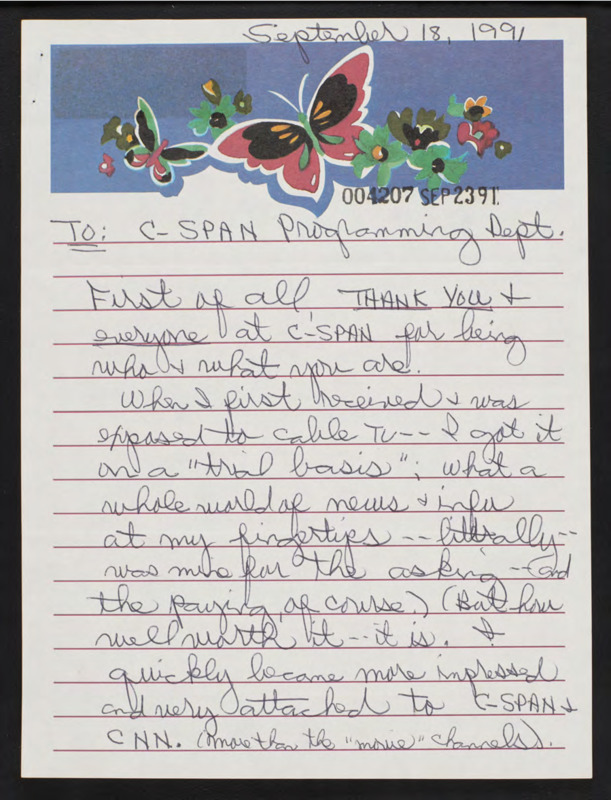 September 18, 1991
004207 SEP 23 91
TO: C-SPAN Programming Dept.
First of all THANK YOU &
everyone at C-SPAN for being
who & what you are.
When I first received & was
exposed to cable TV -- I got it
on a "trial basis"; what a
whole world of news & info
at my fingertips -- litterally --
was mine for the asking -- (and
the paying, of course.) (But how
well worth it -- it is. I
quickly became more impressed
and very attached to C-SPAN &
CNN. (more than the "movie" channels).